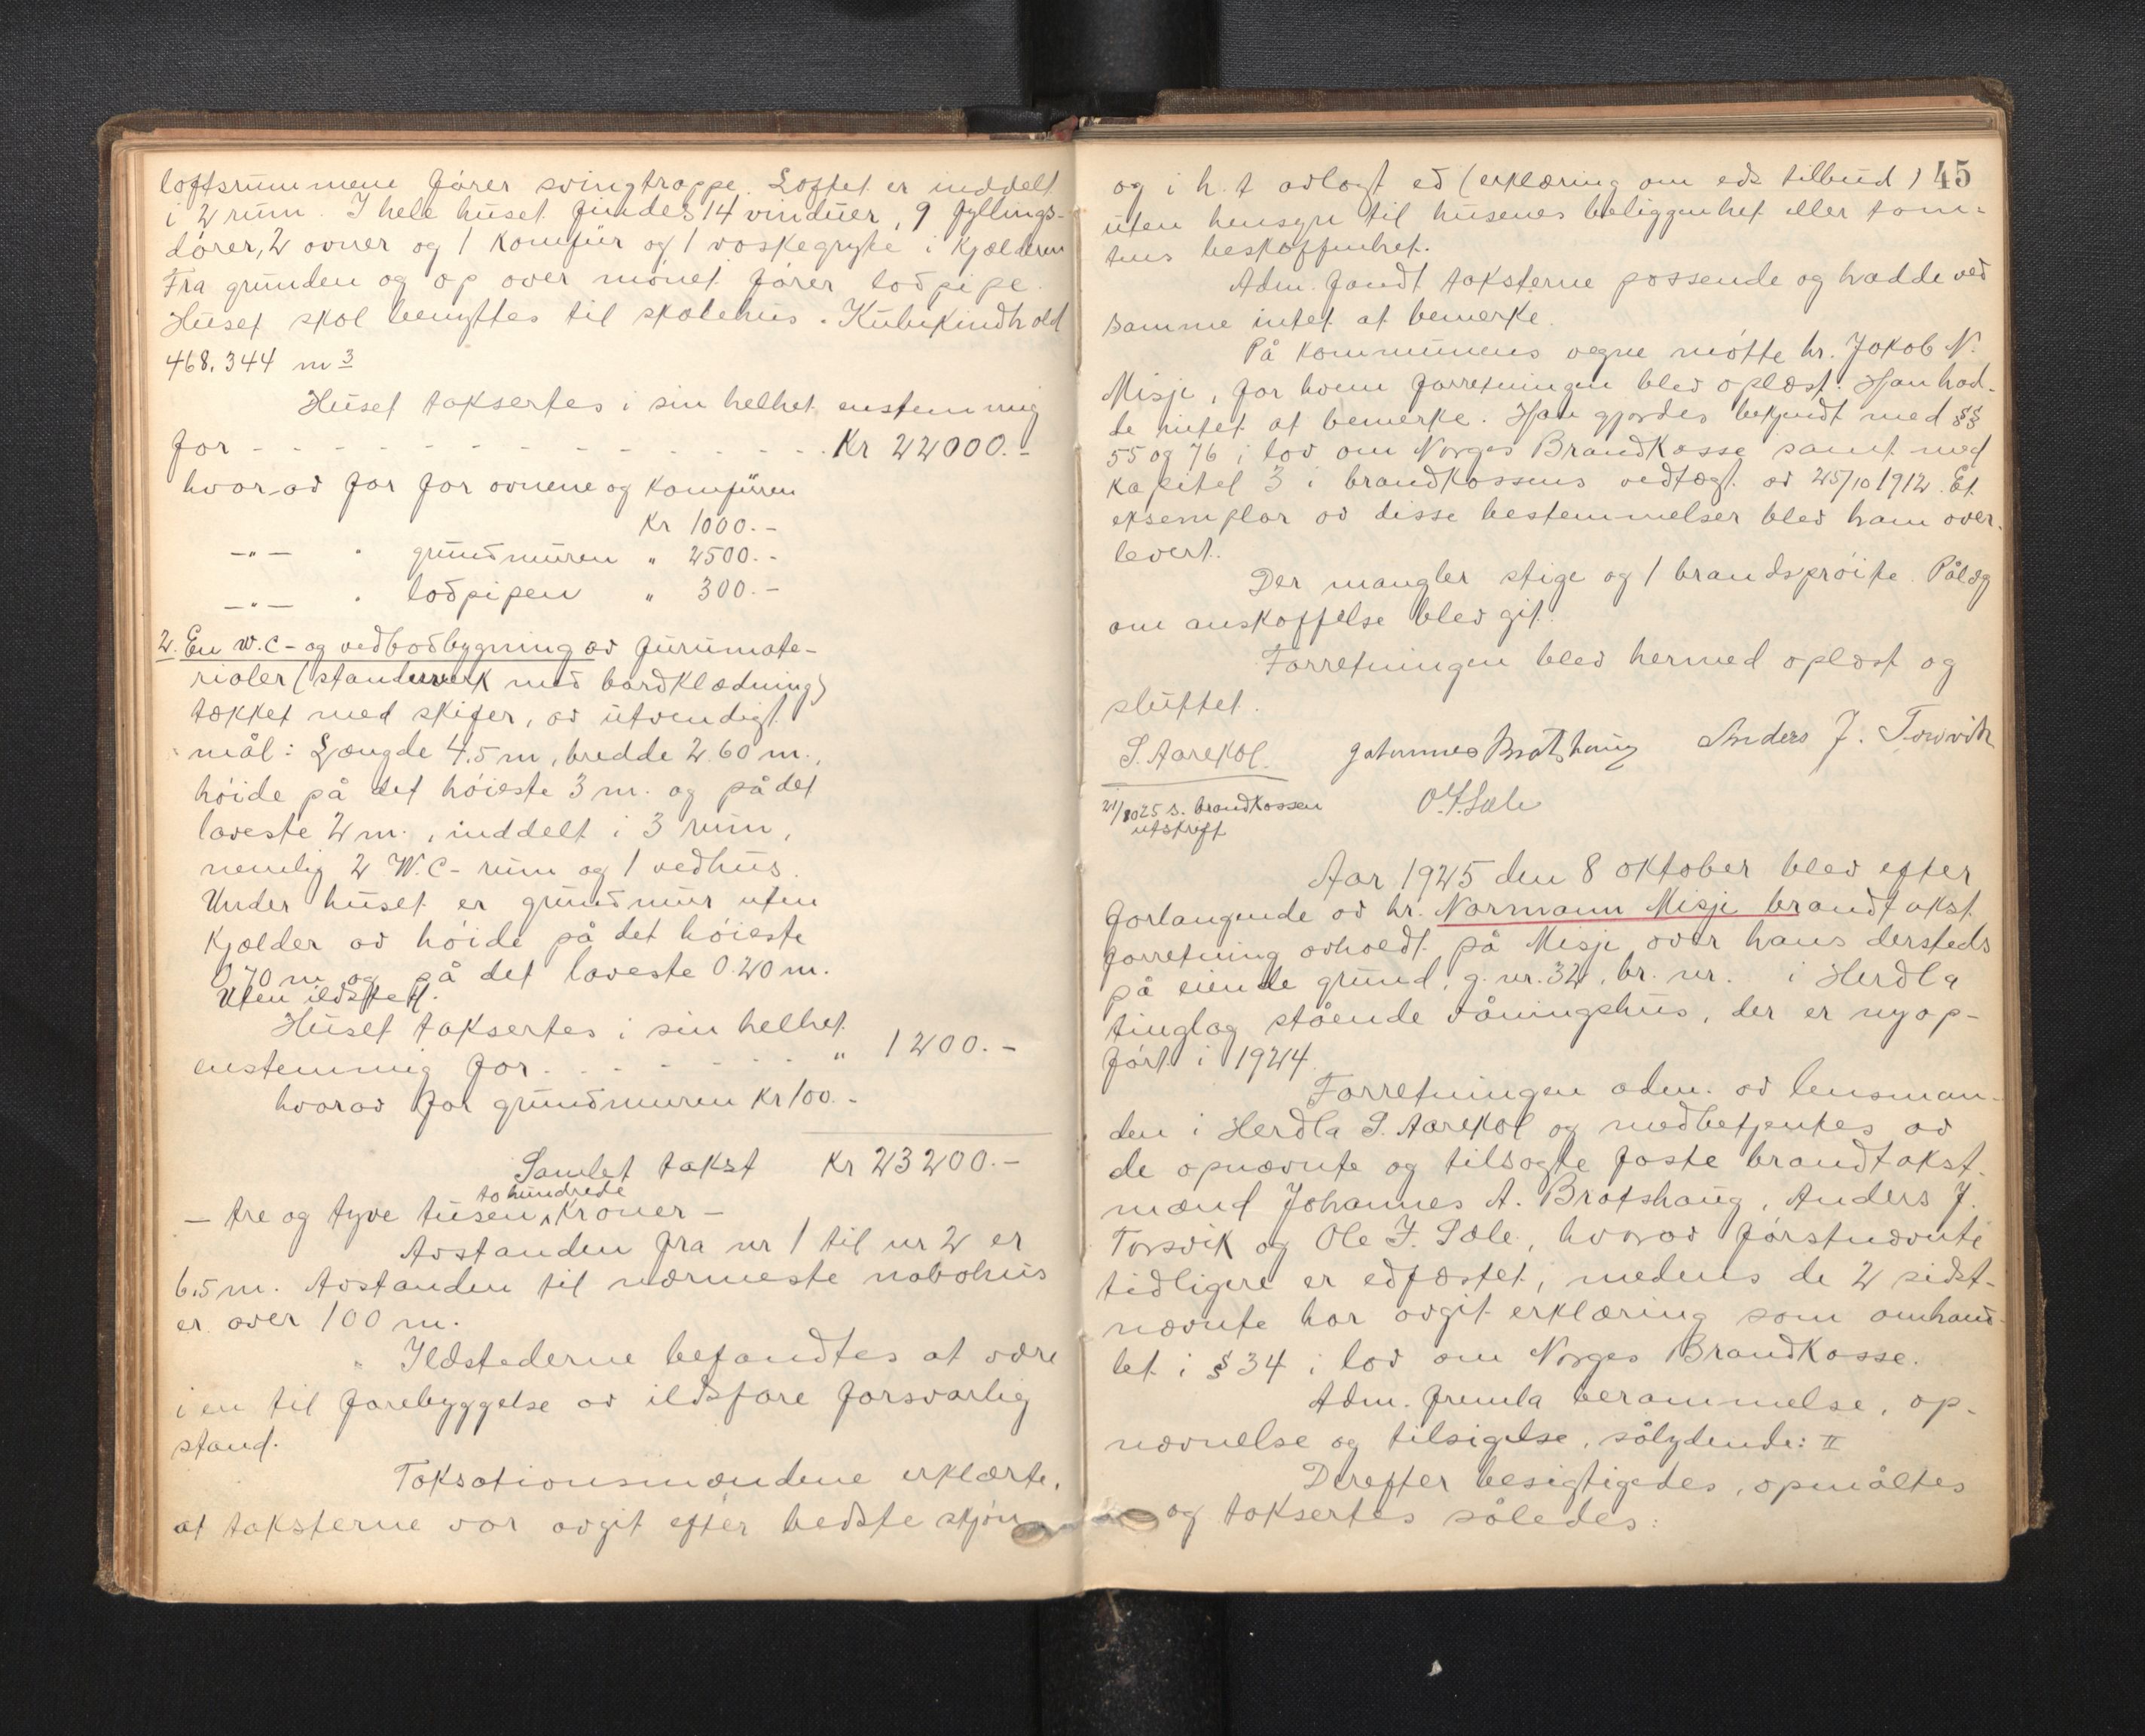 loftsrummene fører svingtrappe. Loftet er inddelt
i 2 rum. I hele huset findes 14 vinduer, 9 fyllings-
dører, 2 ovner og 1 komfür og 1 vaskegryte i kjælderen
Fra grunden og op over mønet fører lodpipe.
Huset skal benyttes til skolehus. Kubikindhold
468.344 m3
Huset taksertes i sin helhet enstemmig
for - - - - - - - - - - - - - - Kr 22000.-
hvorav for for ovnene og komfüren
Kr 1000.-
—"— " grundmuren " 2500.-
—"— " lodpipen " 300.-
2. En W.C- og vedbodbygning av furumate-
rialer (standerverk med bordklædning)
tækket med skifer, av utvendigt
mål: Længde 4.5 m, bredde 2.60 m.,
høide på det høieste 3 m. og på det
laveste 2 m., inddelt i 3 rum,
nemlig 2 W.C- rum og 1 vedhus.
Under huset er grundmur uten
kjælder av høide på det høieste
0.70 m og på det laveste 0.20 m.
Uten ildsted.
Huset taksertes i sin helhet
enstemmig for - - - - - - - " 1200.-
hvorav for grundmuren Kr 100.-
Samlet takst Kr 23200.-
to hundrede
— tre og tyve tusen ^ Kroner —
Avstanden fra nr 1 til nr 2 er
6.5 m. Avstanden til nærmeste nabohus
er over 100 m.
Ildstederne befandtes at være
i en til forebyggelse av ildsfare forsvarlig
stand.
Taksationsmændene erklærte,
at taksterne var avgit efter bedste skjøn
45
og i h.t avlagt ed (erklæring om eds tilbud)
uten hensyn til husenes beliggenhet eller tom-
tens beskaffenhet.
Adm. fandt taksterne passende og hadde ved
samme intet at bemerke.
På kommunens vegne møtte hr. Jakob N.
Misje, for hvem forretningen blev oplæst. Han had-
de intet at bemerke. Han gjordes bekjendt med §§
55 og 76 i lov om Norges Brandkasse samt med
kapitel 3 i brandkassens vedtægt av 25/10 1912. Et
eksemplar av disse bestemmelser blev ham over-
levert.
Der mangler stige og 1 brandsprøite. Pålæg
om anskaffelse blev git.
Forretningen blev hermed oplæst og
sluttet.
S. Aarekol. Johannes Bratshaug Anders J. Torsvik
21/10 25 s. brandkassen O. J. Sæle
utskrift
Aar 1925 den 8 oktober blev efter
forlangende av hr. Normann Misje brandtakst
forretning avholdt på Misje over hans dersteds
på eiende grund, g. nr. 32, br. nr. i Herdla
tinglag stående våningshus, der er nyop-
ført i 1924.
Forretningen adm. av lensman-
den i Herdla S. Aarekol og medbetjentes av
de opnævnte og tilsagte faste brandtakst-
mænd Johannes A. Bratshaug, Anders J.
Torsvik og Ole J. Sæle, hvorav førstnævnte
tidligere er edfæstet, medens de 2 sidst-
nævnte har avgit erklæring som omhand-
let i § 34 i lov om Norges Brandkasse.
Adm. fremla berammelse, op-
nævnelse og tilsigelse, sålydende: II
Derefter besigtigedes, opmåltes
og taksertes således: